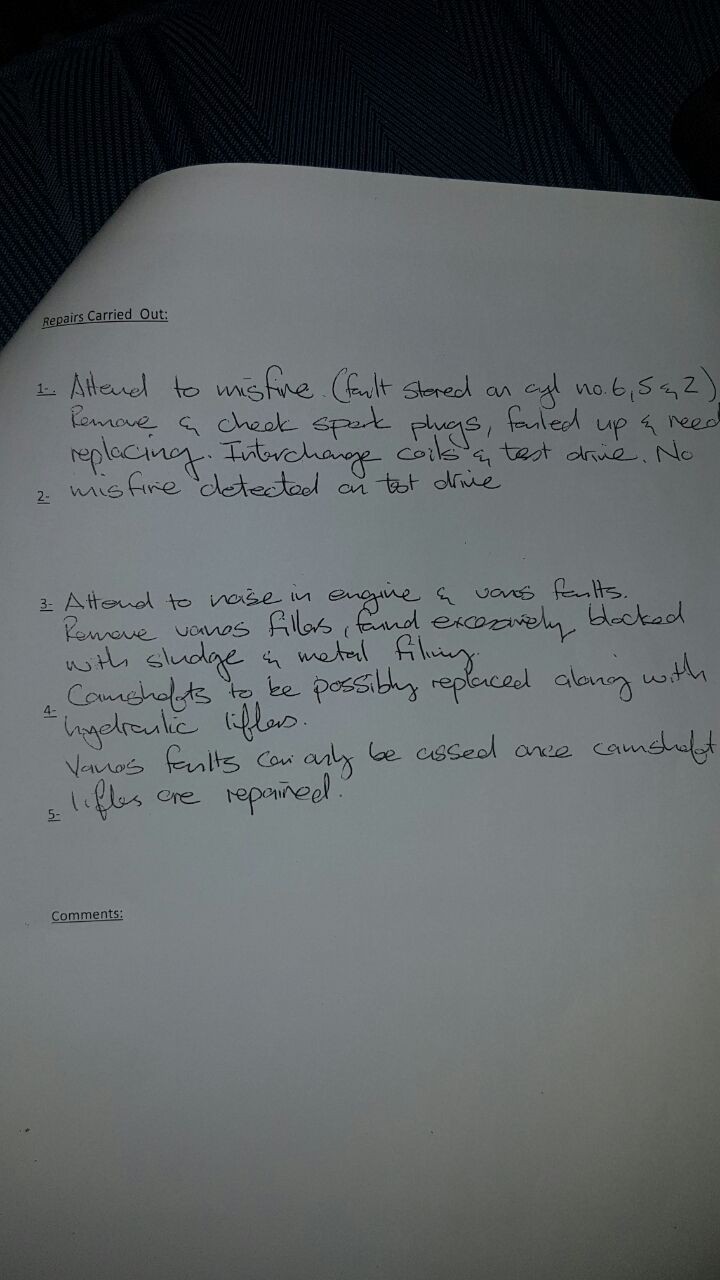 Repairs Carried Out:
1-. Attend to misfire. (fault stored on cyl no. 6, 5 & 2)
Remove & check spark plugs, fouled up & need
replacing. Interchange coils & test drive. No
2- misfire detected on test drive
3- Attend to noise in engine & vanos faults.
Remove vanos filters, found excessively blocked
with sludge & metal filing.
Camshafts to be possibly replaced along with
4- hydraulic lifters.
Vanos faults can only be assed once camshaft
5- lifters are repaired.
Comments: